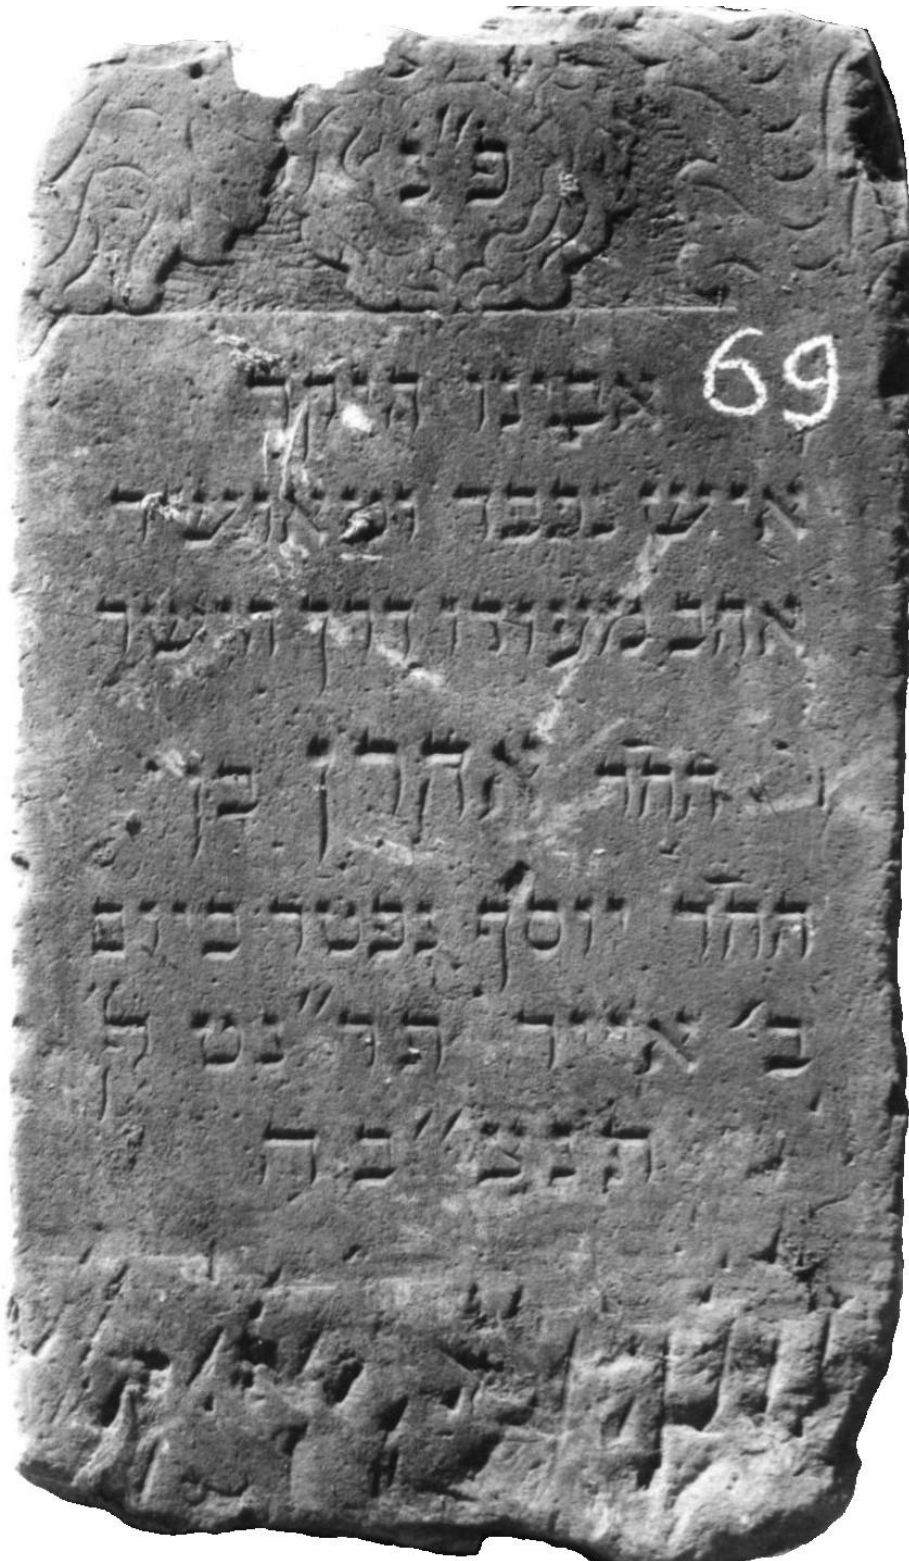 פ נ
69
אבינו היקר
איש נכבד ומאושר
אהב מעודו דרך הישר
החר אהרן בן
החר יוסף נפטר ביום
ב׳ אייר תר״נט ל׳
תנצ״בה